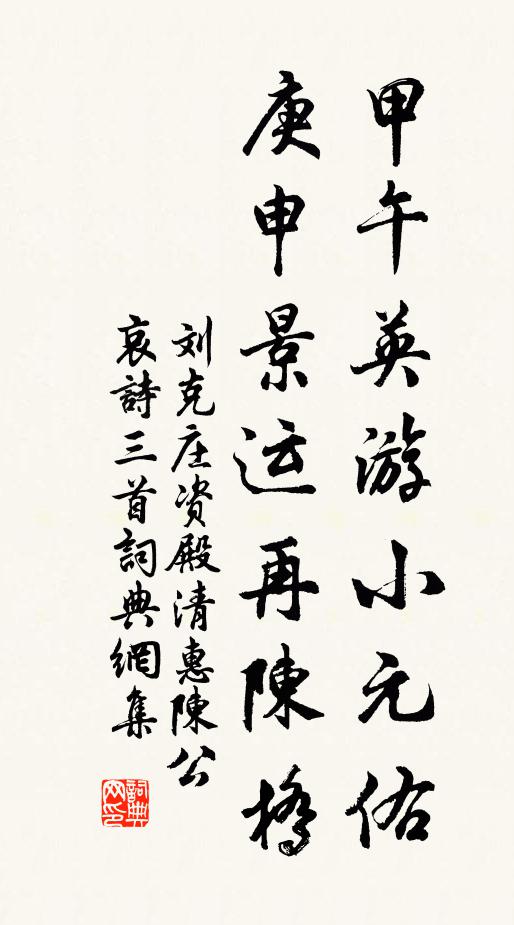 甲午英游小元佑
庚申景运再陳橋
刘克庄资殿清惠陳公
哀詩三首詞典網集
詞典
网印